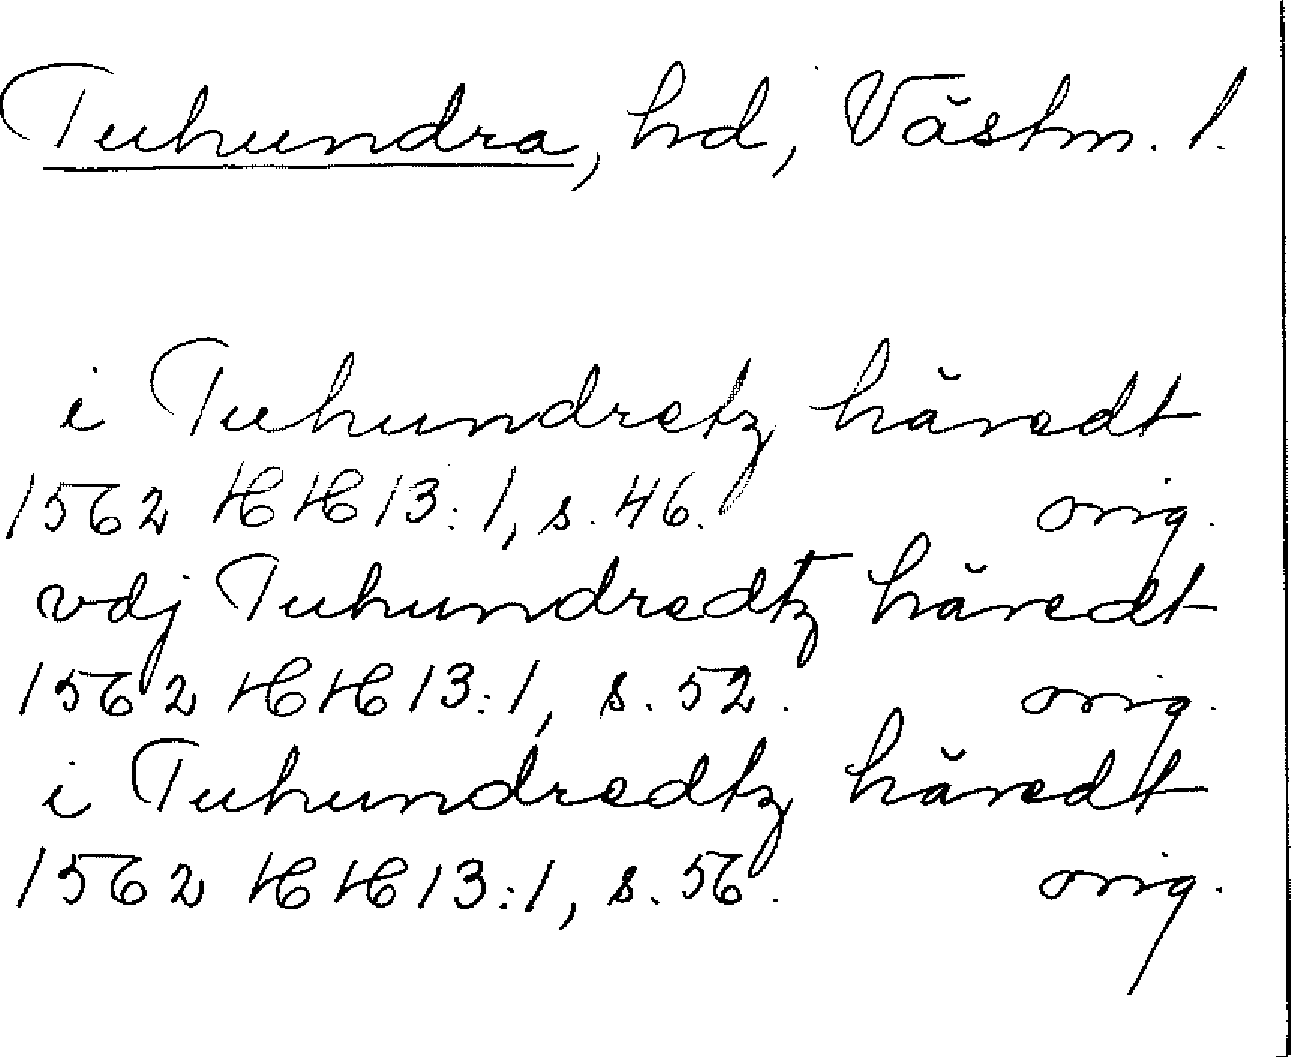 Tuhundra, hd, Västm. l.
i Tuhundretz häredt
1562 HH 13:1, s. 46. orig.
vdj Tuhundredtz häredt
1562 HH 13:1, s. 52. orig.
i Tuhundredtz häredt
1562 HH 13:1, s. 56. orig.